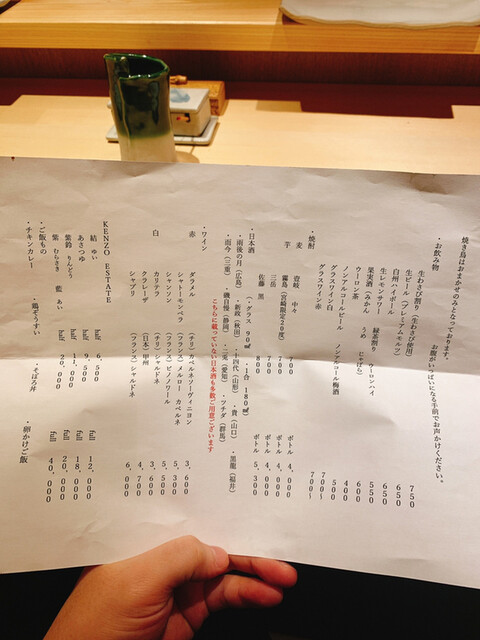 焼き鳥はおまかせのみとなっております。
お腹がいっぱいになる手前でお声がけください。
・お飲み物
生わさび割り（生わさび使用） 750
生ビール（プレミアムモルツ） 650
白州ハイボール 600
生レモンサワー 650
果実酒（みかん うめ じゃばら） 550
緑茶割り ウーロンハイ
ウーロン茶 400
ノンアルコールビール ノンアルコール梅酒 500
グラスワイン白 700～
グラスワイン赤 700～
・焼酎
麦 壱岐 中々 700 ボトル 4,000
芋 霧島（宮崎限定20度） ボトル 4,000
三岳 700 ボトル 4,000
佐藤 黒 800 ボトル 5,300
・日本酒 （・グラス 90㎖ ・1合 180㎖）
・雨後の月（広島） ・新政（秋田） ・十四代（山形） ・貴（山口） ・黒龍（福井）
・而今（三重） ・磯自慢（静岡） ・二兎（愛知） ・ツチダ（群馬）
こちらに載っていない日本酒も多数ご用意ございます
・ワイン
赤 ダラメル （チリ）カベルネソーヴィニヨン 3,600
シャトーモンペラ （フランス）メルロー カベルネ 5,300
シャンソン （フランス）ピノノワール 5,500
白 カリテラ （チリ）シャルドネ 3,600
ククラーザ （日本）甲州 4,700
シャブリ （フランス）シャルドネ 6,000
KENZO ESTATE
結 ゆい half 6,500 full 12,000
あさつゆ half 9,500 full 18,000
紫鈴 りんどう half 11,000 full 20,000
紫 むらさき 藍 あい half 20,000 full 40,000
・ご飯もの
・チキンカレー ・鶏ぞうすい ・そぼろ丼 ・卵かけご飯